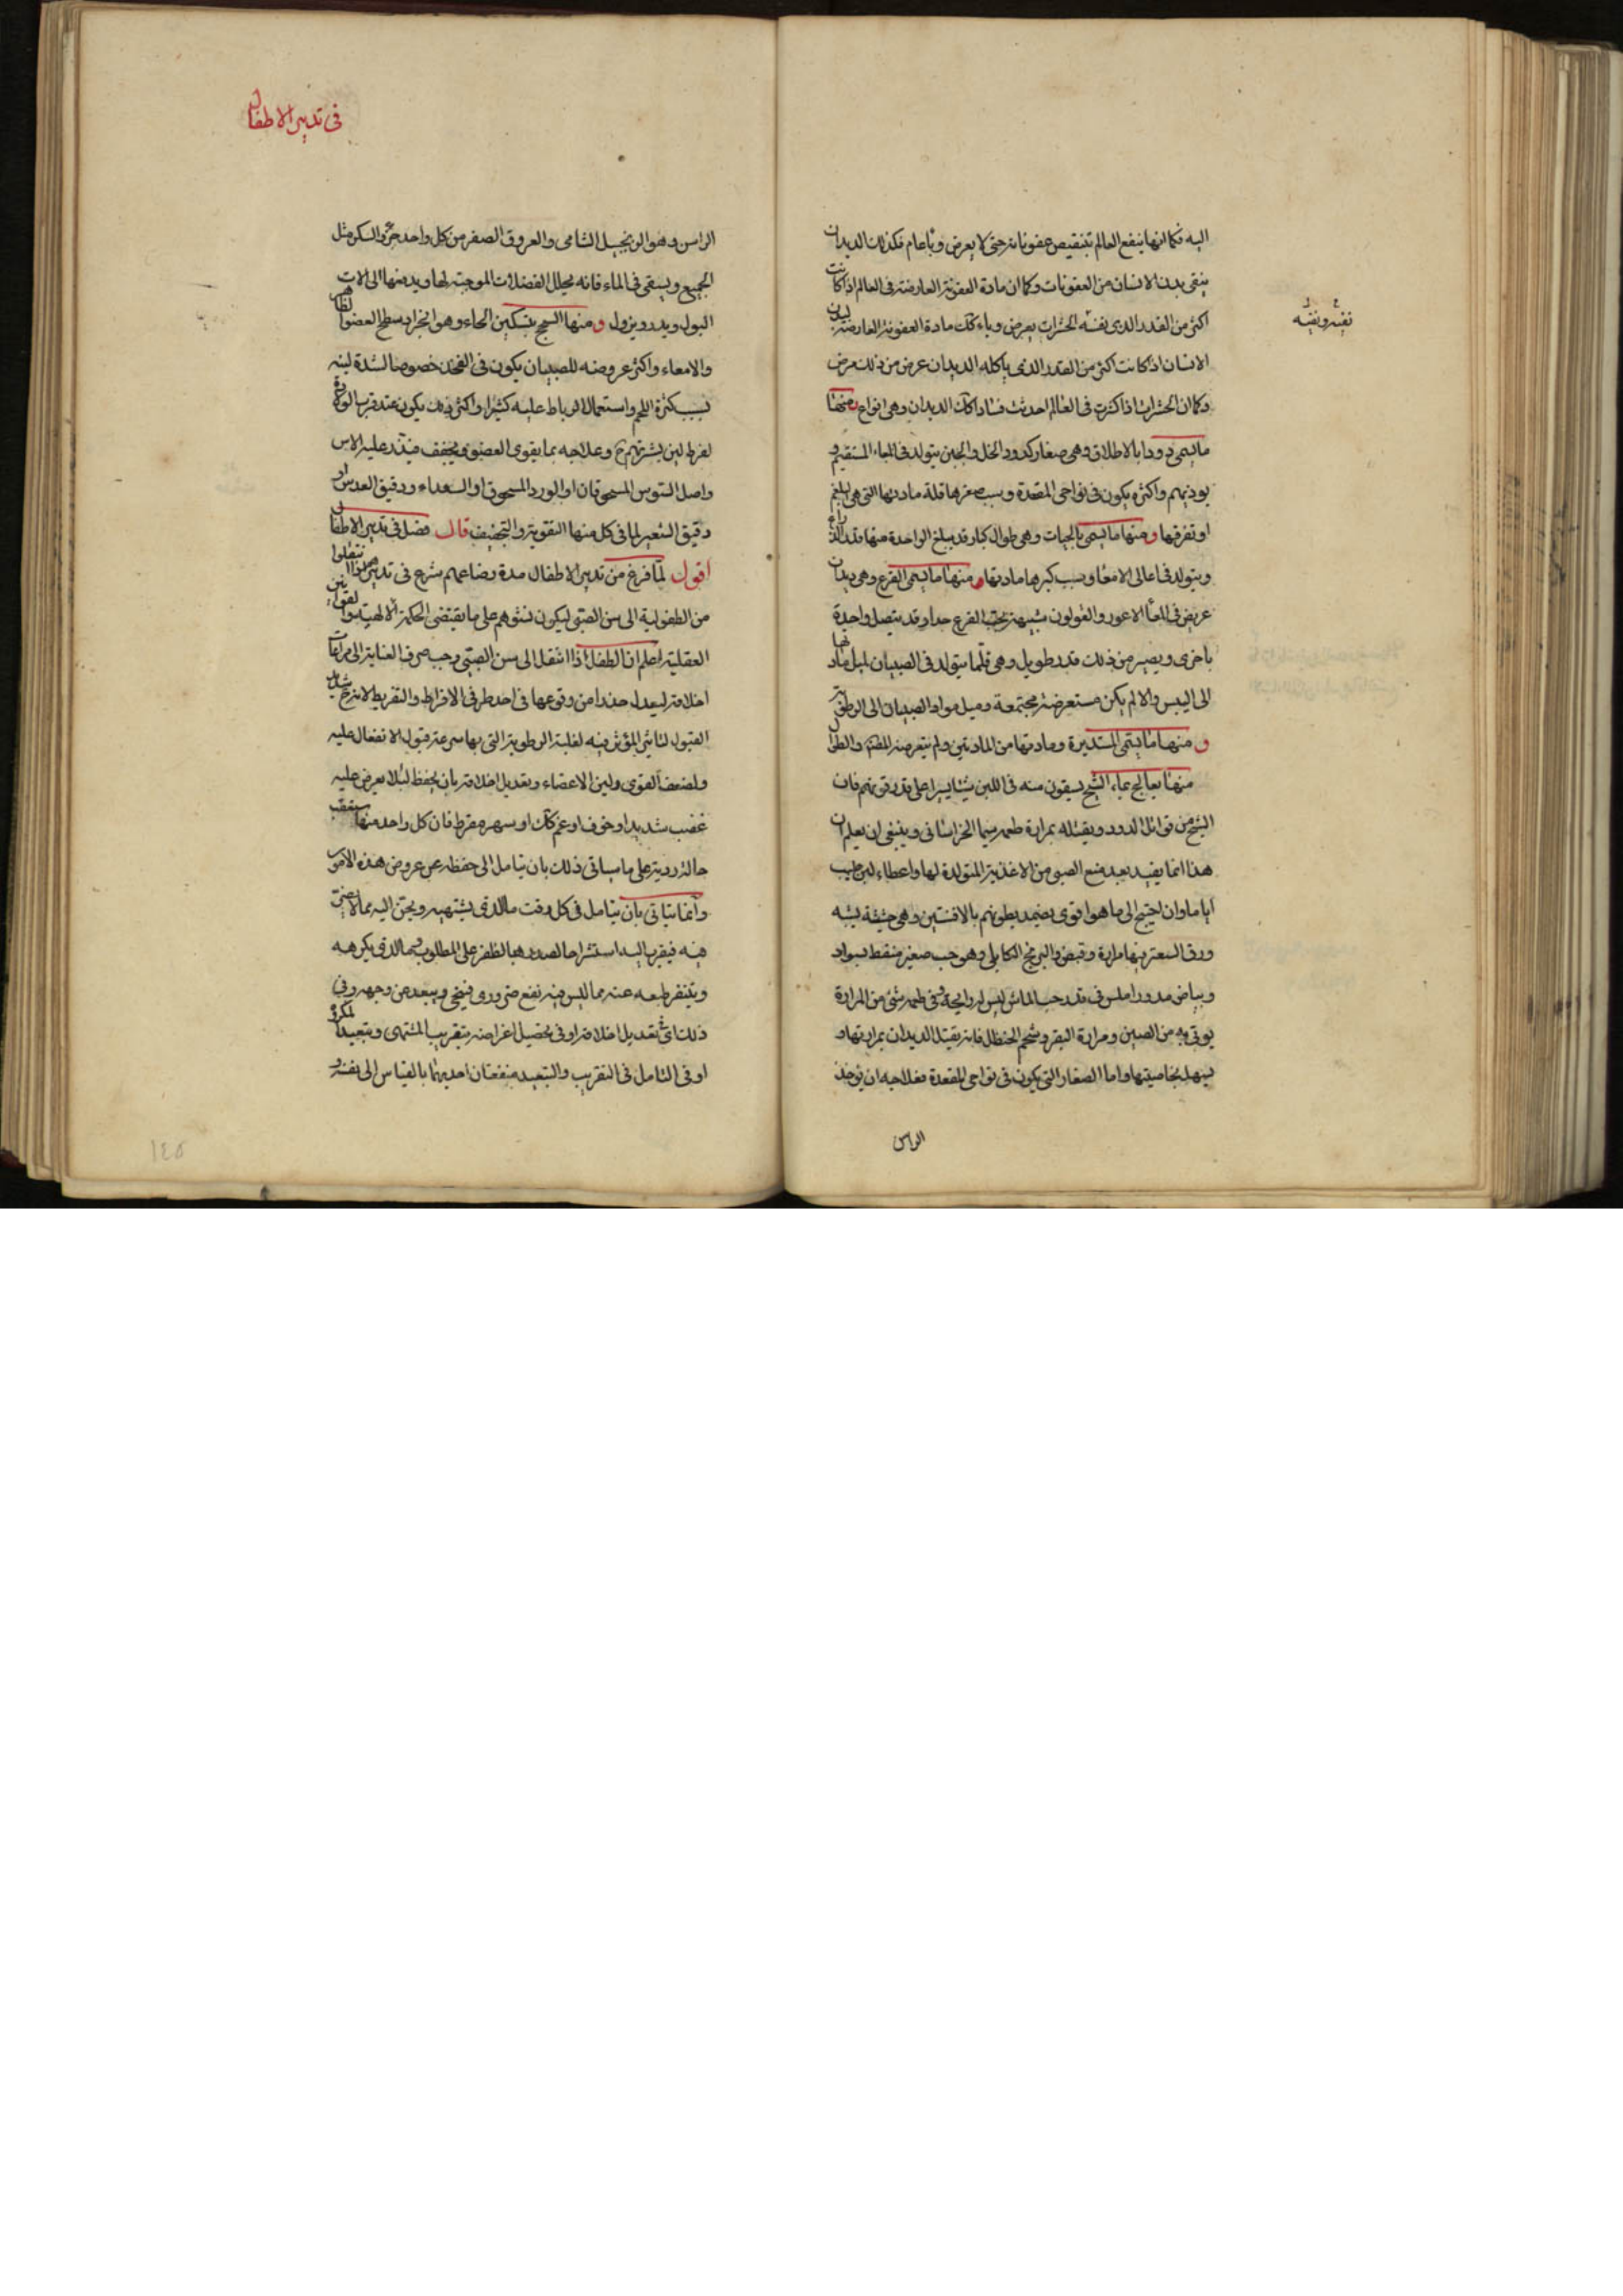 اليه فكما انها ينفع العالم بتنقيص عفوناته حتى لا يعرض وباء عام فكذلك الديدان
ينقى بدن الانسان من العفونات وكما ان مادة العفونة العارضة في العالم اذا كانت
اكثر من القدر الذى تفنيه الحشرات يعرض وباء كذلك مادة العفونة العارضة لبدن
الانسان اذا كانت اكثر من القدر الذى ياكله الديدان عرض من ذلك مرض
وكما ان الحشرات اذا كثرت فى العالم احدثت فسادا كذلك الديدان وهى انواع منها
ما يسمى دودا بالاطلاق وهى صغار كدود الخل والجبن يتولد فى المعاء المستقيم و
يوذيهم واكثره يكون فى نواحى المقعدة وسبب صغرها قلة مادتها التى هى البلغم
او تفرقها ومنها ما يسمى بالحيات وهى طوال كبار قد يبلغ الواحدة منها قدر الذراع
ويتولد فى اعالى الامعاء وسبب كبرها مادتها ومنها ما يسمى القرع وهى ديدان
عريض فى المعاء الاعور والقولون شبيهة بحب القرع جدا وقد يتصل واحدة
باخرى ويصير من ذلك قدر طويل وهى قلما يتولد فى الصبيان لميل مادتها
الى اليبس والا لم يكن مستعرضة مجتمعة وميل مواد الصبيان الى الرطوبة
ومنها ما يسمى المستديرة ومادتها من المادتين ولم يتعرض المصنف والطوال
منها يعالج بماء الشيح يسقون منه فى اللبن شيئا يسيرا على قدر قوتهم فان
الشيح من قواتل الدود ويقتله بمرارة طعمه سيما الخراسانى وينبغى ان يعلم ان
هذا انما يفيد بعد منع الصبى من الاغذية المتولدة لها واعطاء لبن طيب
اياما وان احتيج الى ما هو اقوى يضمد بطونهم بالافسنتين وهى حشيشة يشبه
ورق السعتر فيها مرارة وقبض والبرنج الكابلى وهو حب صغير منقط بسواد
وبياض مدور املس فى قدر حب الماش ليس له رايحة وفى طعمه شئ من المرارة
يوتى به من الصين ومرارة البقر وشحم الحنظل فانه يقتل الديدان بمرارتها و
يسهل بخاصيتها واما الصغار التى يكون فى نواحى المقعدة فعلاجه ان يوخذ
الراسن
فى تدبير الاطفال
الراسن وهو الزنجبيل الشامى والعروق الصفر من كل واحد جزء والسكر مثل
الجميع ويسقى فى الماء فانه يحلل الفضلات الموجبة لها ويدفعها الى الات
البول ويدر ويزول ومنها السحج بتسكين الحاء وهو انجراد سطح العضو الظاهر
والامعاء واكثر عروضه للصبيان يكون فى الفخذ خصوصا لشدة لينه
بسبب كثرة اللحم واستعمال الرباط عليه كثيرا واكثر ذلك يكون عند قرب الولادة
لفرط لين بشرتهم ح وعلاجه بما يقوى العضو ويجفف فيذر عليه الاس
واصل السوس المسحوقان او الورد المسحوق او السعداء ودقيق العدس او
دقيق الشعير لما فى كل منها التقوية والتجفيف قال فصل فى تدبير الاطفال
اقول لما فرغ من تدبير الاطفال مدة رضاعهم شرع فى تدبيرهم اذا انتقلوا
من الطفولية الى سن الصبى ليكون نشوهم على ما يقتضى الحكمة الالهية والقوانين
العقلية اعلم ان الطفل اذا انتقل الى سن الصبى وجب صرف العناية الى مراعات
اخلاقه ليعدل حذرا من وقوعها فى احد طرفى الافراط والتفريط لانه ح شديد
القبول لتاثير المؤثر فيه لغلبة الرطوبة التى بها سرعة قبول الانفعال عليه
ولضعف القوى ولين الاعضاء وتعديل اخلاقه بان يحفظ لئلا يعرض عليه
غضب شديد او خوف او غم كذلك او سهر مفرط فان كل واحد منها يستعقب
حالة ردية على ما سياتى ذلك بان يتامل الى حفظه عن عروض هذه الامور
وانما يتاتى بان يتامل فى كل وقت ما الذى يشتهيه ويحن اليه مما لا ضرر
فيه فيقرب اليه استشراحا لصدره بالظفر على المطلوب وما الذى يكرهه
ويتنفر طبعه عنه مما ليس فيه نفع ضرورى فينحى ويبعد عن وجهه وفى
ذلك اى تعديل اخلاقه او فى تحصيل اغراضه بتقريب المشتهى وتبعيد المكروه
او فى التامل فى التقريب والتبعيد منفعتان احديهما بالقياس الى نفسه و
١٤٥